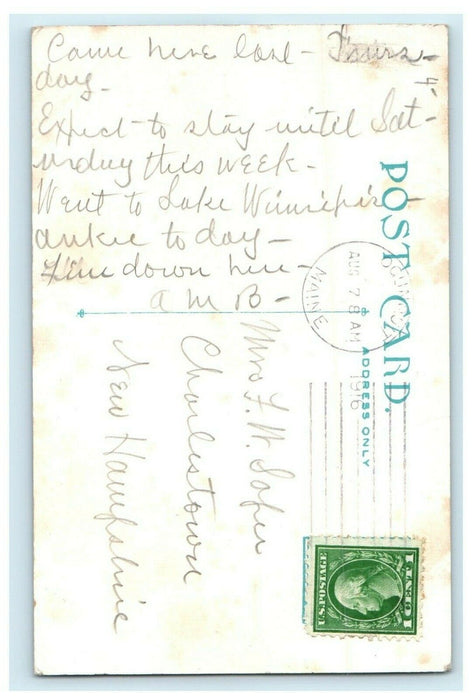 Came here last - Thurs-
day -
Expect to stay until Sat-
urday this week -
Went to Lake Winnepis-
aukee to day -
Fine down here -
A M B -
POST CARD.
ADDRESS ONLY
AUG 7 8 AM
1916
MAINE
Mrs F. W.
Charlestown
New Hampshire
U.S. POSTAGE
1 CENT 1